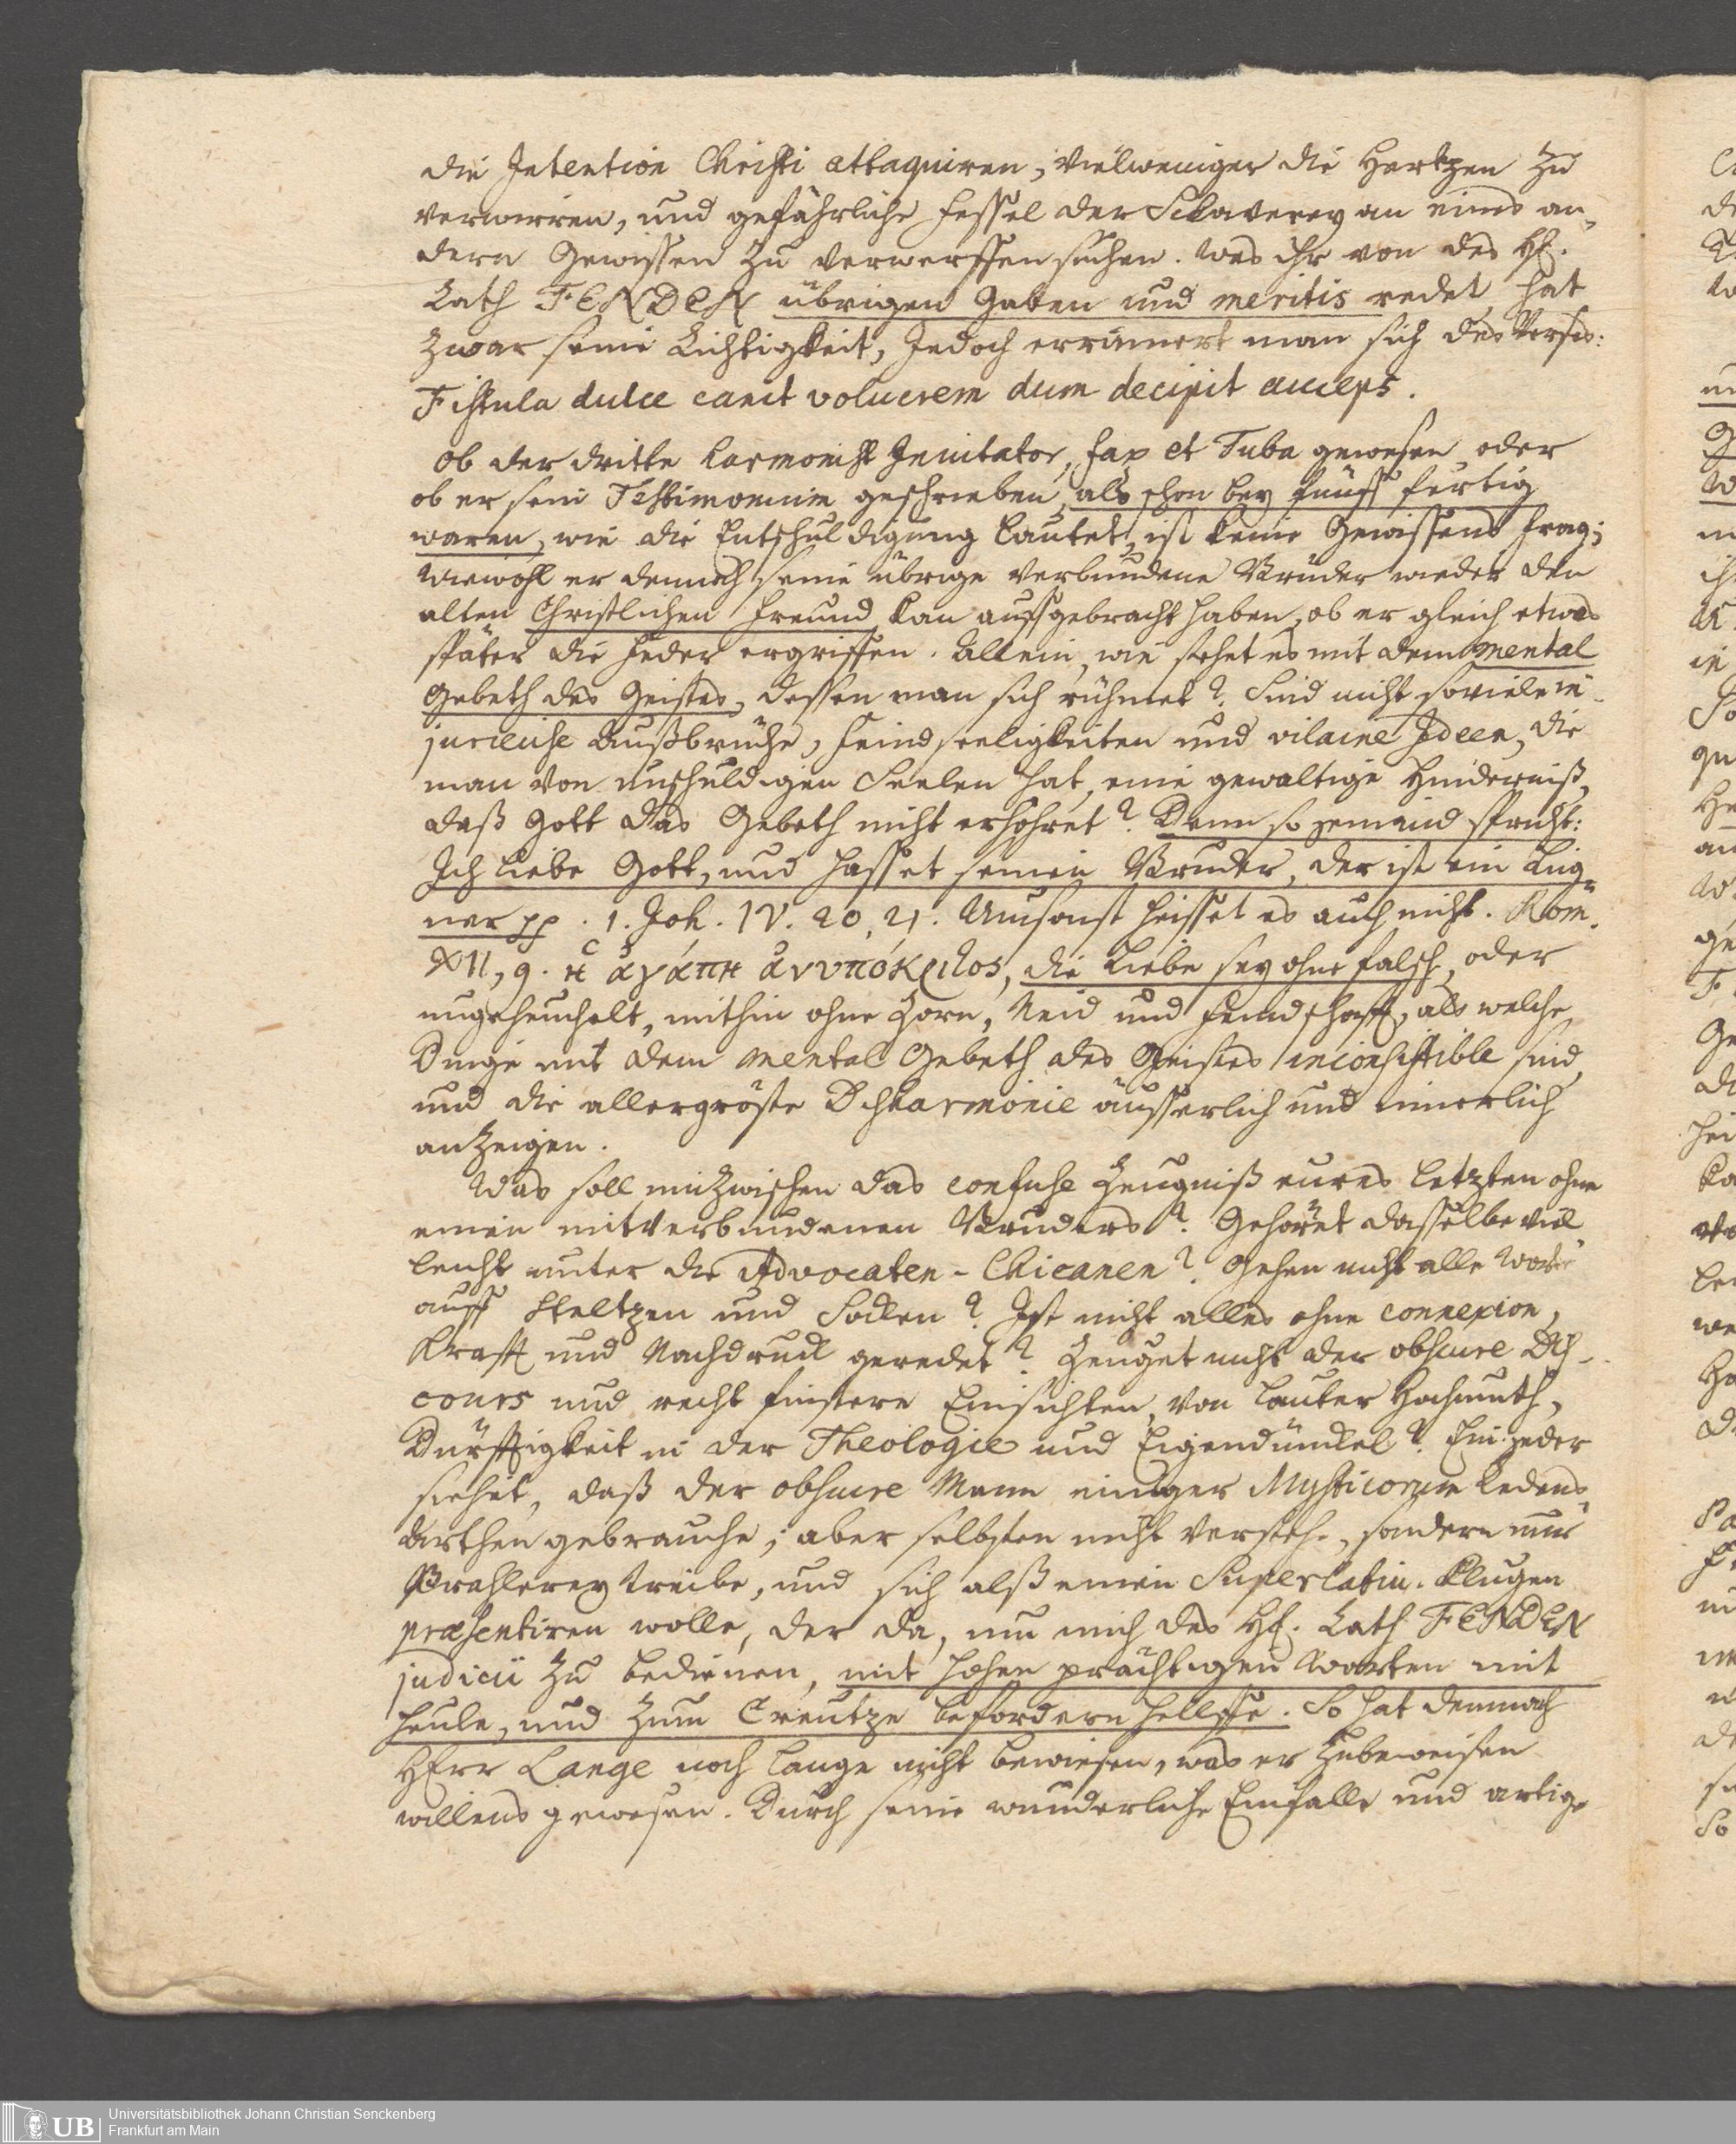 die Intention Christi attaquiren, vielweniger die Hertzen zu
verwirren, und gefährliche Fessel der Sclaverey an eines an-
dern Gewissen zu verwerffen suchen. Was ihr von des H.
Rath FENDEN übrigen Gaben und meritis redet, hat
zwar seine Richtigkeit, Jedoch errinnert man sich des Verses:
Fistula dulce canit volucrem dum decipit auceps.
Ob der dritte Harmonist Invitator, fax et Tuba gewesen oder
ob er sein Testimonium geschrieben, als schon bey fünff fertig
waren, wie die Entschuldigung lautet, ist keine Gewissens Frag;
Wiewohl er dennoch seine übrige verbundene Brüder wieder den
alten Christlichen Freund kan auffgebracht haben, ob er gleich etwas
später die Feder ergriffen. Allein, wie stehet es mit dem mental
Gebeth des Geistes, dessen man sich rühmet? Sind nicht so viele in-
jurieuse Außbrüche, Feindseeligkeiten und vilaine Ideen, die
man von unschuldigen Seelen hat, eine gewaltige Hinderniß,
daß Gott das Gebeth nicht erhöhret? Denn so jemand spricht:
Ich liebe Gott, und hasset seinen Bruder, der ist ein Lüg-
ner pp. 1. Joh. IV. 20, 21. Umsonst heisset es auch nicht. Rom.
XII, 9. ἡ ἀγάπη ἀνυπόκριτος, die Liebe sey ohne falsch, oder
ungeheuchelt, mithin ohne Zorn, Neid und Feindschafft, als welche
Dinge mit dem mental Gebeth des Geistes inconsistible sind,
und die allergröste Disharmonie äusserlich und innerlich
anzeigen.
Was soll inzwischen das confuse Zeugniß eures letzten ohne
einen mitverbundenen Bruders? Gehöret dasselbe viel
leicht unter die Advocaten-Chicanen? Gehen nicht alle Worte
auff Steltzen und Socken? Ist nicht alles ohne connexion,
Krafft und Nachdruck geredet? Zeuget nicht der obscure Dis-
cours und recht finstere Einsichten, von lauter Hochmuth,
Dürfftigkeit in der Theologie und Eigendünckel? Ein jeder
siehet, daß der obscure Mann einiger Mysticorum Redens-
Arthen gebrauche; aber selbsten nicht verstehe, sondern nur
Prahlerey treibe, und sich alß einen Superlativ. Klugen
præsentiren wolle, der da, um mich des H. Rath FENDEN
judicii zu bedienen, mit hohen prächtigen Worten mit
heule, und zum Creutze befordern helffe. So hat demnach
HErr Lange noch lange nicht bewiesen, was er zubeweisen
willens gewesen. Durch seine wunderliche Einfälle und artige
Universitätsbibliothek Johann Christian Senckenberg
Frankfurt am Main
UB